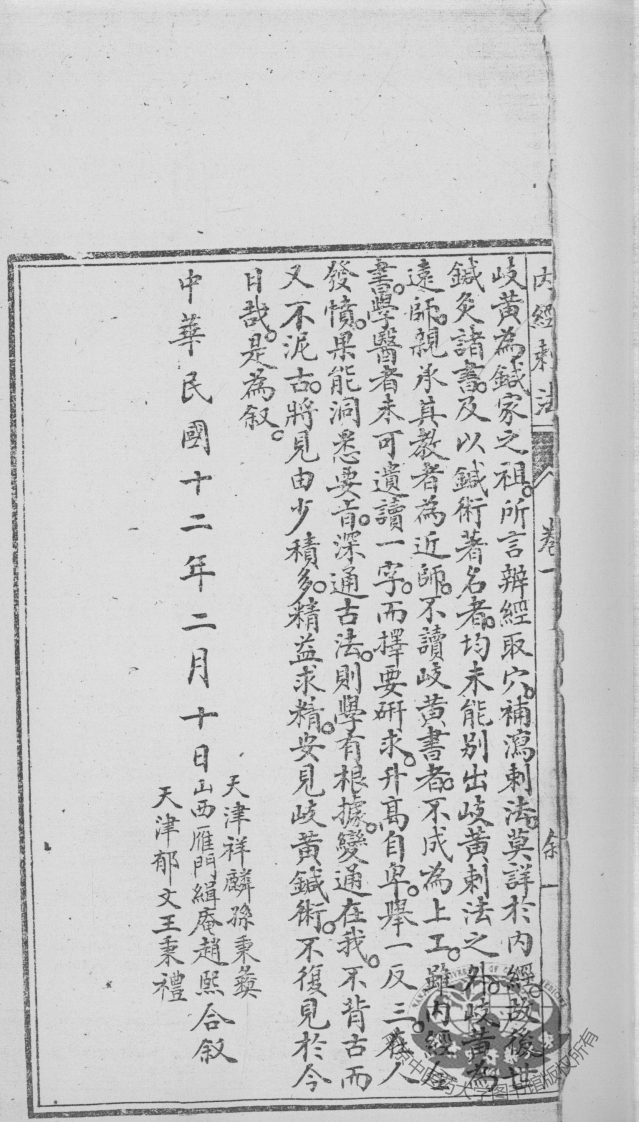 內經刺法 卷一 叙一
岐黃為鍼家之祖。所言辨經取穴。補瀉刺法。莫詳於內經。故後世
鍼灸諸書。及以鍼術著名者。均未能別出岐黃刺法之外。岐黃為
遠師。親承其教者為近師。不讀岐黃書者。不成為上工。雖內經全
書。學醫者未可遺讀一字。而擇要研求。升高自卑。舉一反三。在人
發憤。果能洞悉要旨。深通古法。則學有根據。變通在我。不背古而
又不泥古。將見由少積多。精益求精。安見岐黃鍼術。不復見於今
日哉。是為叙。
中華民國十二年二月十日
天津祥麟孫秉彝
山西雁門緝庵趙熙合叙
天津郁文王秉禮
南京中醫药大学图书馆版权所有